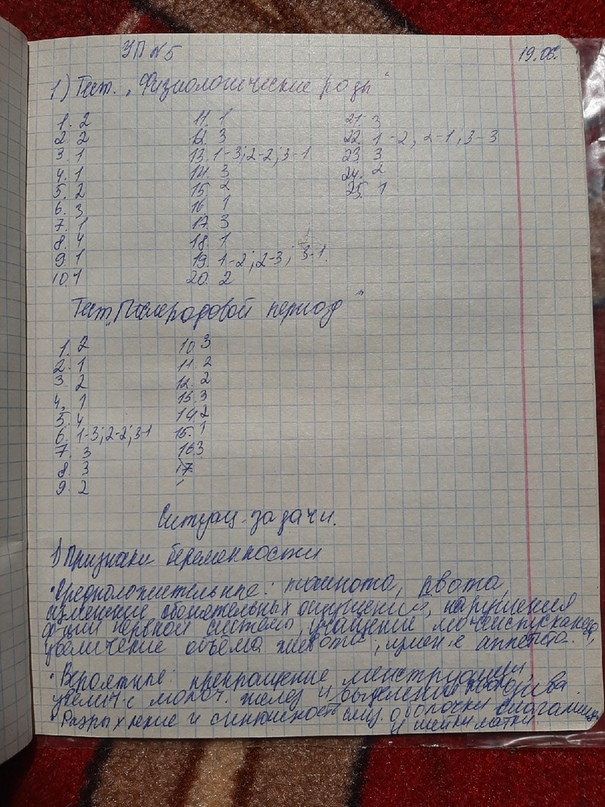 УП №5
19.06.
1) Тест. „Физиологические роды"
1. 2
2. 2
3. 1
4. 1
5. 2
6. 3
7. 1
8. 4
9. 1
10. 1
11. 1
12. 3
13. 1-3; 2-2; 3-1
14. 3
15. 2
16. 1
17. 3
18. 1
19. 1-2; 2-3; 3-1.
20. 2
21. 3
22. 1-2, 2-1, 3-3
23. 3
24. 2
25. 1
Тест „Послеродовой период"
1. 2
2. 1
3. 2
4. 1
5. 4
6. 1-3; 2-2; 3-1
7. 3
8. 3
9. 2
10. 3
11. 2
12. 2
13. 3
14. 2
15. 1
16. 3
17
Ситуац. задачи.
1) Признаки беременности
• Предположительные: тошнота, рвота,
изменение обонятельных ощущений, нарушения
нервной системы, учащение мочеиспускания,
увеличение объема живота, аппетита.
• Вероятные: прекращение менструации,
увелич-е молоч. желез и выделение молозива.
Разрыхление и синюшность слиз. оболочки влагалища
и шейки матки